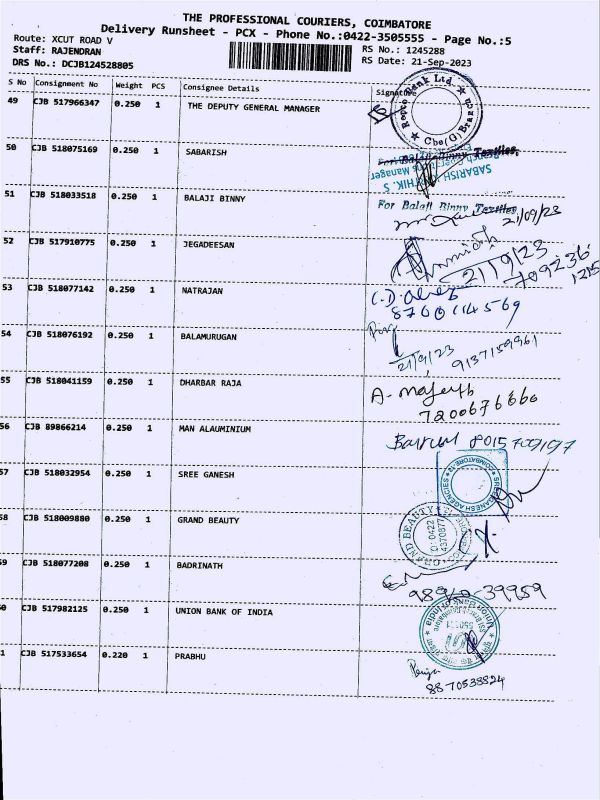 THE PROFESSIONAL COURIERS, COIMBATORE
Delivery Runsheet - PCX - Phone No.:0422-3505555 - Page No.:5
Route: XCUT ROAD V
RS No.: 1245288
Staff: RAJENDRAN
RS Date: 21-Sep-2023
DRS No.: DCJB124528805
S No Consignment No Weight PCS Consignee Details Signature
49 CJB 517966347 0.250 1 THE DEPUTY GENERAL MANAGER
Bank Ltd.
Cbe(G) Branch
50 CJB 518075169 0.250 1 SABARISH
For Balaji Binny Textiles,
SABARISH
Manager
51 CJB 518033518 0.250 1 BALAJI BINNY
For Balaji Binny Textiles
21/09/23
52 CJB 517910775 0.250 1 JEGADEESAN
21/9/23
53 CJB 518077142 0.250 1 NATRAJAN
54 CJB 518076192 0.250 1 BALAMURUGAN
21/9/23
9137159961
55 CJB 518041159 0.250 1 DHARBAR RAJA
7200676666
56 CJB 89866214 0.250 1 MAN ALAUMINIUM
8015709197
57 CJB 518032954 0.250 1 SREE GANESH
SREE GANESH AGENCIES
COIMBATORE-12
58 CJB 518009880 0.250 1 GRAND BEAUTY
GRAND BEAUTY
0422
4370877
59 CJB 518077208 0.250 1 BADRINATH
39959
60 CJB 517982125 0.250 1 UNION BANK OF INDIA
Union Bank of India
61 CJB 517533654 0.220 1 PRABHU
8870538824